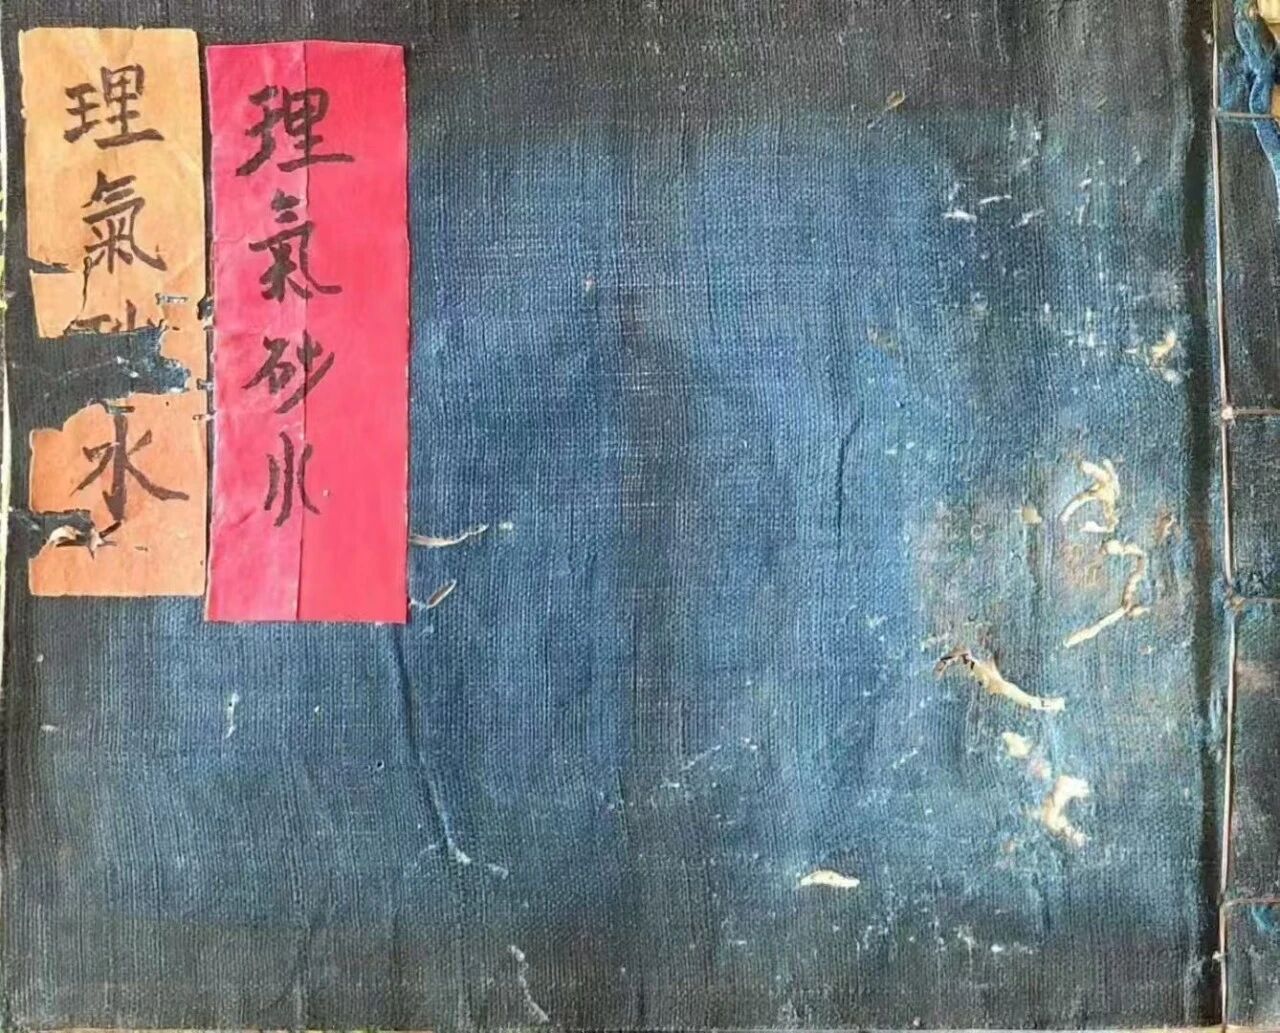 理氣砂水
理氣砂水